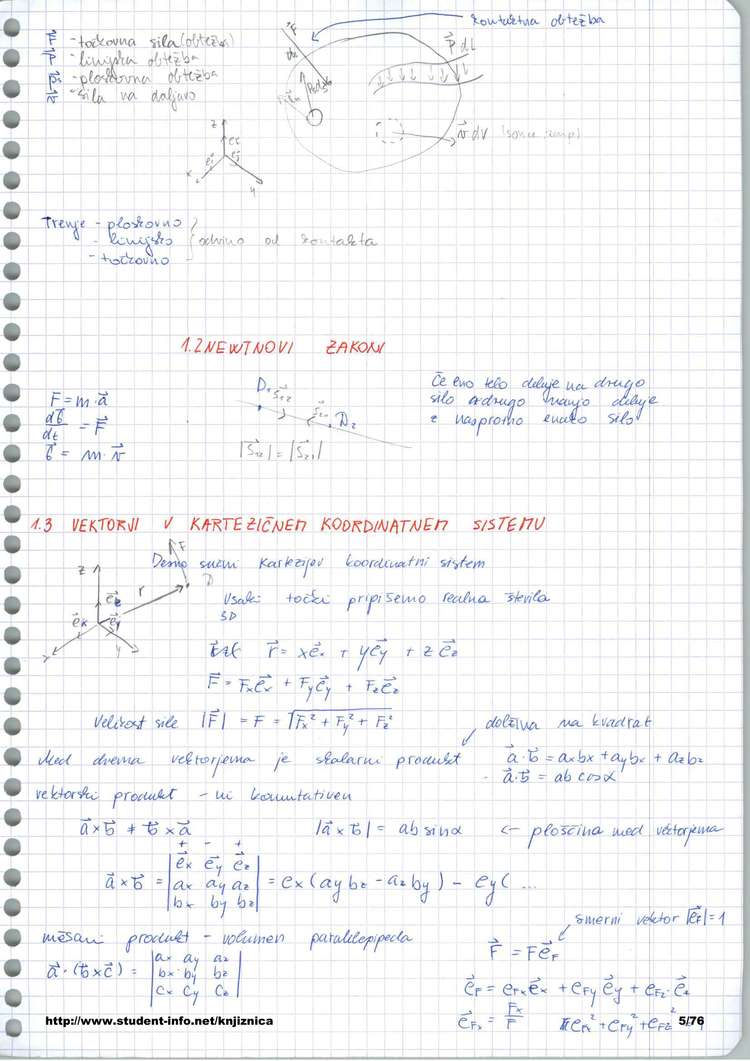 F⃗ - točkovna sila (obtežba)
p⃗ - linijska obtežba
- ploskovna obtežba
v⃗ - sila na daljavo
kontaktna obtežba
F⃗
p⃗ dL
v⃗ dV
z
x
y
Trenje - ploskovno
- linijsko } odvisno od kontakta
- točkovno
1.2 NEWTNOVI ZAKONI
F⃗ = m·a⃗
dG⃗/dt = F⃗
G⃗ = m·v⃗
D₁ S⃗₁₂
S⃗₂₁ D₂
|S⃗₁₂| = |S⃗₂₁|
Če eno telo deluje na drugo
silo drugo nanjo deluje
z nasprotno enako silo
1.3 VEKTORJI V KARTEZIČNEM KOORDINATNEM SISTEMU
z r F D
e⃗x e⃗y e⃗z
y
Desno sučni Kartezijev koordinatni sistem
Vsaki točki pripišemo realna števila
3D
r⃗ = xe⃗x + ye⃗y + ze⃗z
F⃗ = Fxe⃗x + Fye⃗y + Fze⃗z
Velikost sile |F⃗| = F = √Fx² + Fy² + Fz²
dolžina na kvadrat
Med dvema vektorjema je skalarni produkt a⃗·b⃗ = axbx + aybx + azbz
a⃗·b⃗ = ab cosα
vektorski produkt - ni komutativen
a⃗×b⃗ ≠ b⃗×a⃗ |a⃗×b⃗| = ab sinα ← ploščina med vektorjema
+ - +
a⃗×b⃗ = |e⃗x e⃗y e⃗z| = ex(aybz - azby) - ey( ...
|ax ay az|
|bx by bz|
smerni vektor |e⃗F| = 1
mešani produkt - volumen paralelepipeda
F⃗ = Fe⃗F
a⃗·(b⃗×c⃗) = |ax ay az|
|bx by bz|
|cx cy cz|
e⃗F = eFxe⃗x + eFye⃗y + eFz·e⃗z
e⃗Fx = Fx/F
http://www.student-info.net/knjiznica
5/76